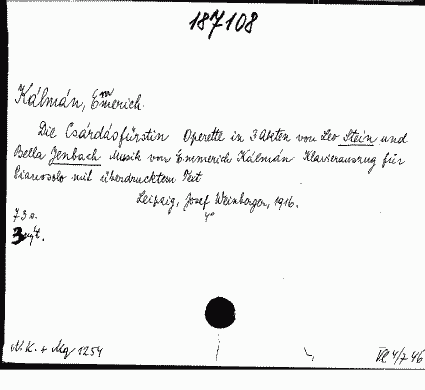 187108
Kálmán, Emmerich.
Die Csárdásfürstin Operette in 3 Akten von Leo Stein und
Bella Jenbach Musik von Emmerich Kálmán Klavierauszug für
Pianosolo mit überdrucktem Text
Leipzig, Josef Weinberger, 1916.
4°
73 o.
N.K. + Mq 1254
VII 4/7 46